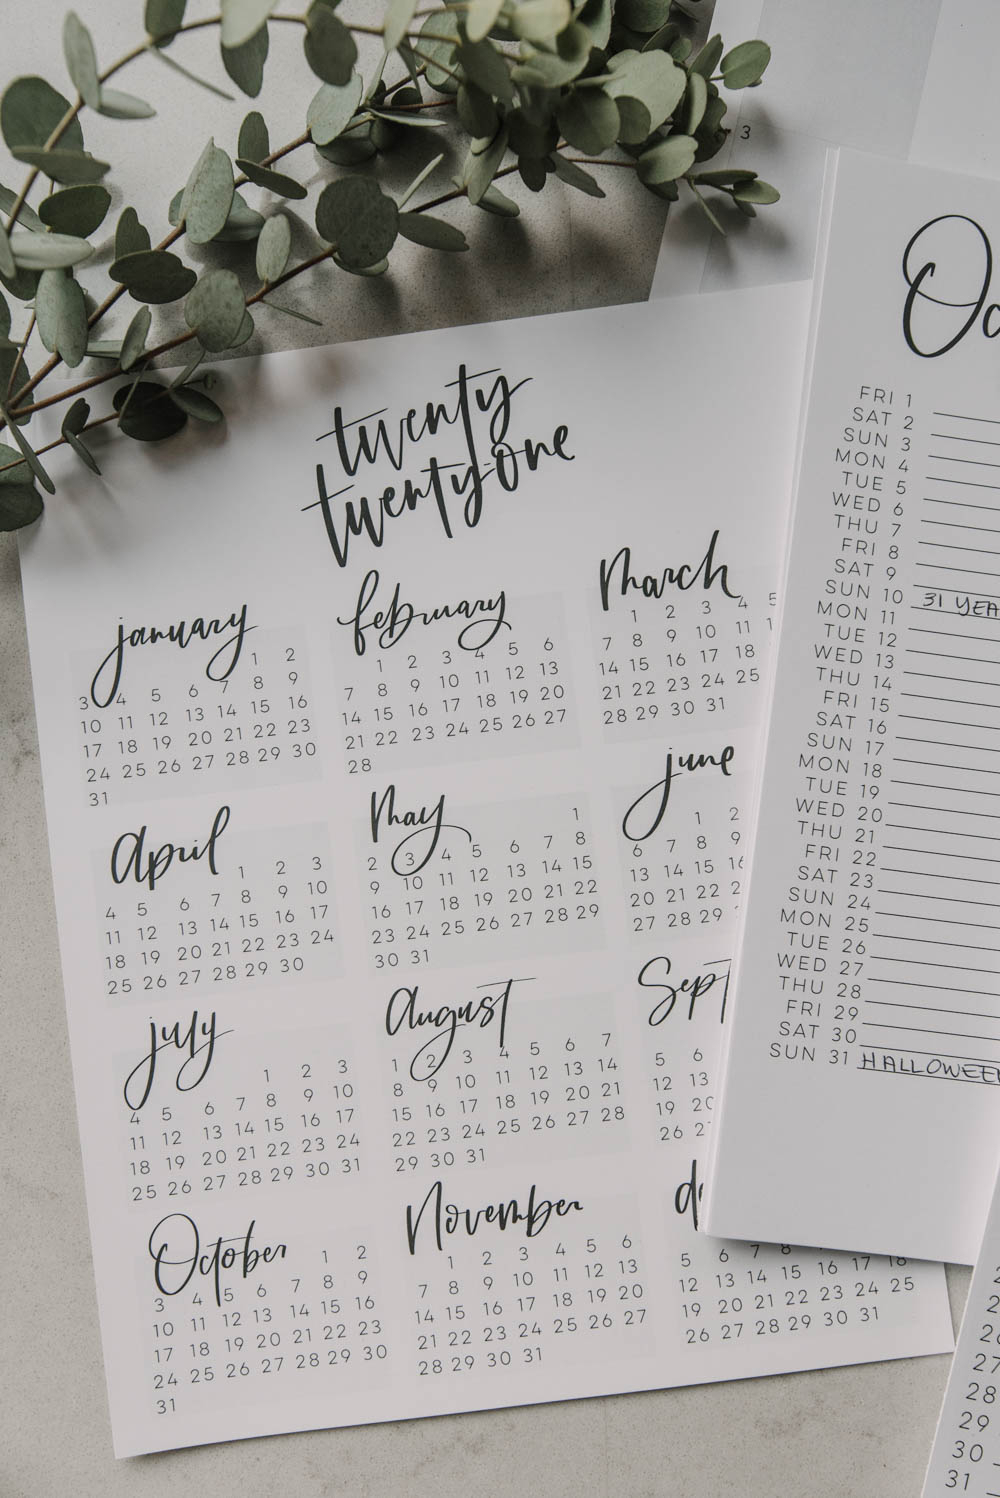 twenty
twenty one
january
1 2
3 4 5 6 7 8 9
10 11 12 13 14 15 16
17 18 19 20 21 22 23
24 25 26 27 28 29 30
31
february
1 2 3 4 5 6
7 8 9 10 11 12 13
14 15 16 17 18 19 20
21 22 23 24 25 26 27
28
march
1 2 3 4 5
7 8 9 10 11
14 15 16 17 18
21 22 23 24 25
28 29 30 31
april
1 2 3
4 5 6 7 8 9 10
11 12 13 14 15 16 17
18 19 20 21 22 23 24
25 26 27 28 29 30
may
1
2 3 4 5 6 7 8
9 10 11 12 13 14 15
16 17 18 19 20 21 22
23 24 25 26 27 28 29
30 31
june
1 2
6 7 8 9
13 14 15
20 21 22
27 28 29
july
1 2 3
4 5 6 7 8 9 10
11 12 13 14 15 16 17
18 19 20 21 22 23 24
25 26 27 28 29 30 31
august
1 2 3 4 5 6 7
8 9 10 11 12 13 14
15 16 17 18 19 20 21
22 23 24 25 26 27 28
29 30 31
Sept
5 6
12 13
19
26
October
1 2
3 4 5 6 7 8 9
10 11 12 13 14 15 16
17 18 19 20 21 22 23
24 25 26 27 28 29 30
31
November
1 2 3 4 5 6
7 8 9 10 11 12 13
14 15 16 17 18 19 20
21 22 23 24 25 26 27
28 29 30 31
5 6 7 8
12 13 14 15 16 17 18
19 20 21 22 23 24 25
26 27 28 29 30 31
3
Oc
FRI 1
SAT 2
SUN 3
MON 4
TUE 5
WED 6
THU 7
FRI 8
SAT 9
SUN 10 31 YEA
MON 11
TUE 12
WED 13
THU 14
FRI 15
SAT 16
SUN 17
MON 18
TUE 19
WED 20
THU 21
FRI 22
SAT 23
SUN 24
MON 25
TUE 26
WED 27
THU 28
FRI 29
SAT 30
SUN 31 HALLOWEEN
27
28
29
30
31